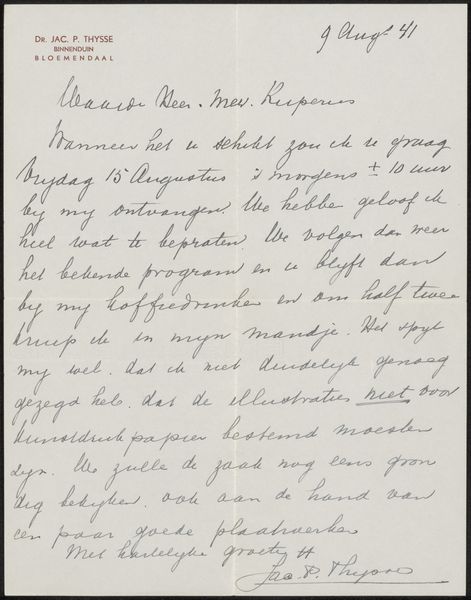 DR. JAC. P. THYSSE
BINNENDUIN
BLOEMENDAAL
9 Augs 41
Waarde Heer. Mevr. Kuperus
Wanneer het u schikt zou ik u graag
Vrydag 15 Augustus 's morgens ± 10 uur
by my ontvangen. We hebben geloof ik
heel wat te bepraten. We volgen dan weer
het bekende program en u blyft dan
by my koffiedrinken en om half twee
kruip ik in myn mandje. Het spyt
my wel. dat ik niet duidelyk genoeg
gezegd heb. dat de illustraties niet voor
kunstdruk papier bestemd moesten
zyn. We zullen de zaak nog eens gron
dig bekyken. ook aan de hand van
een paar goede plaatwerken
Met hartelyke groeten
Jac. P. Thysse